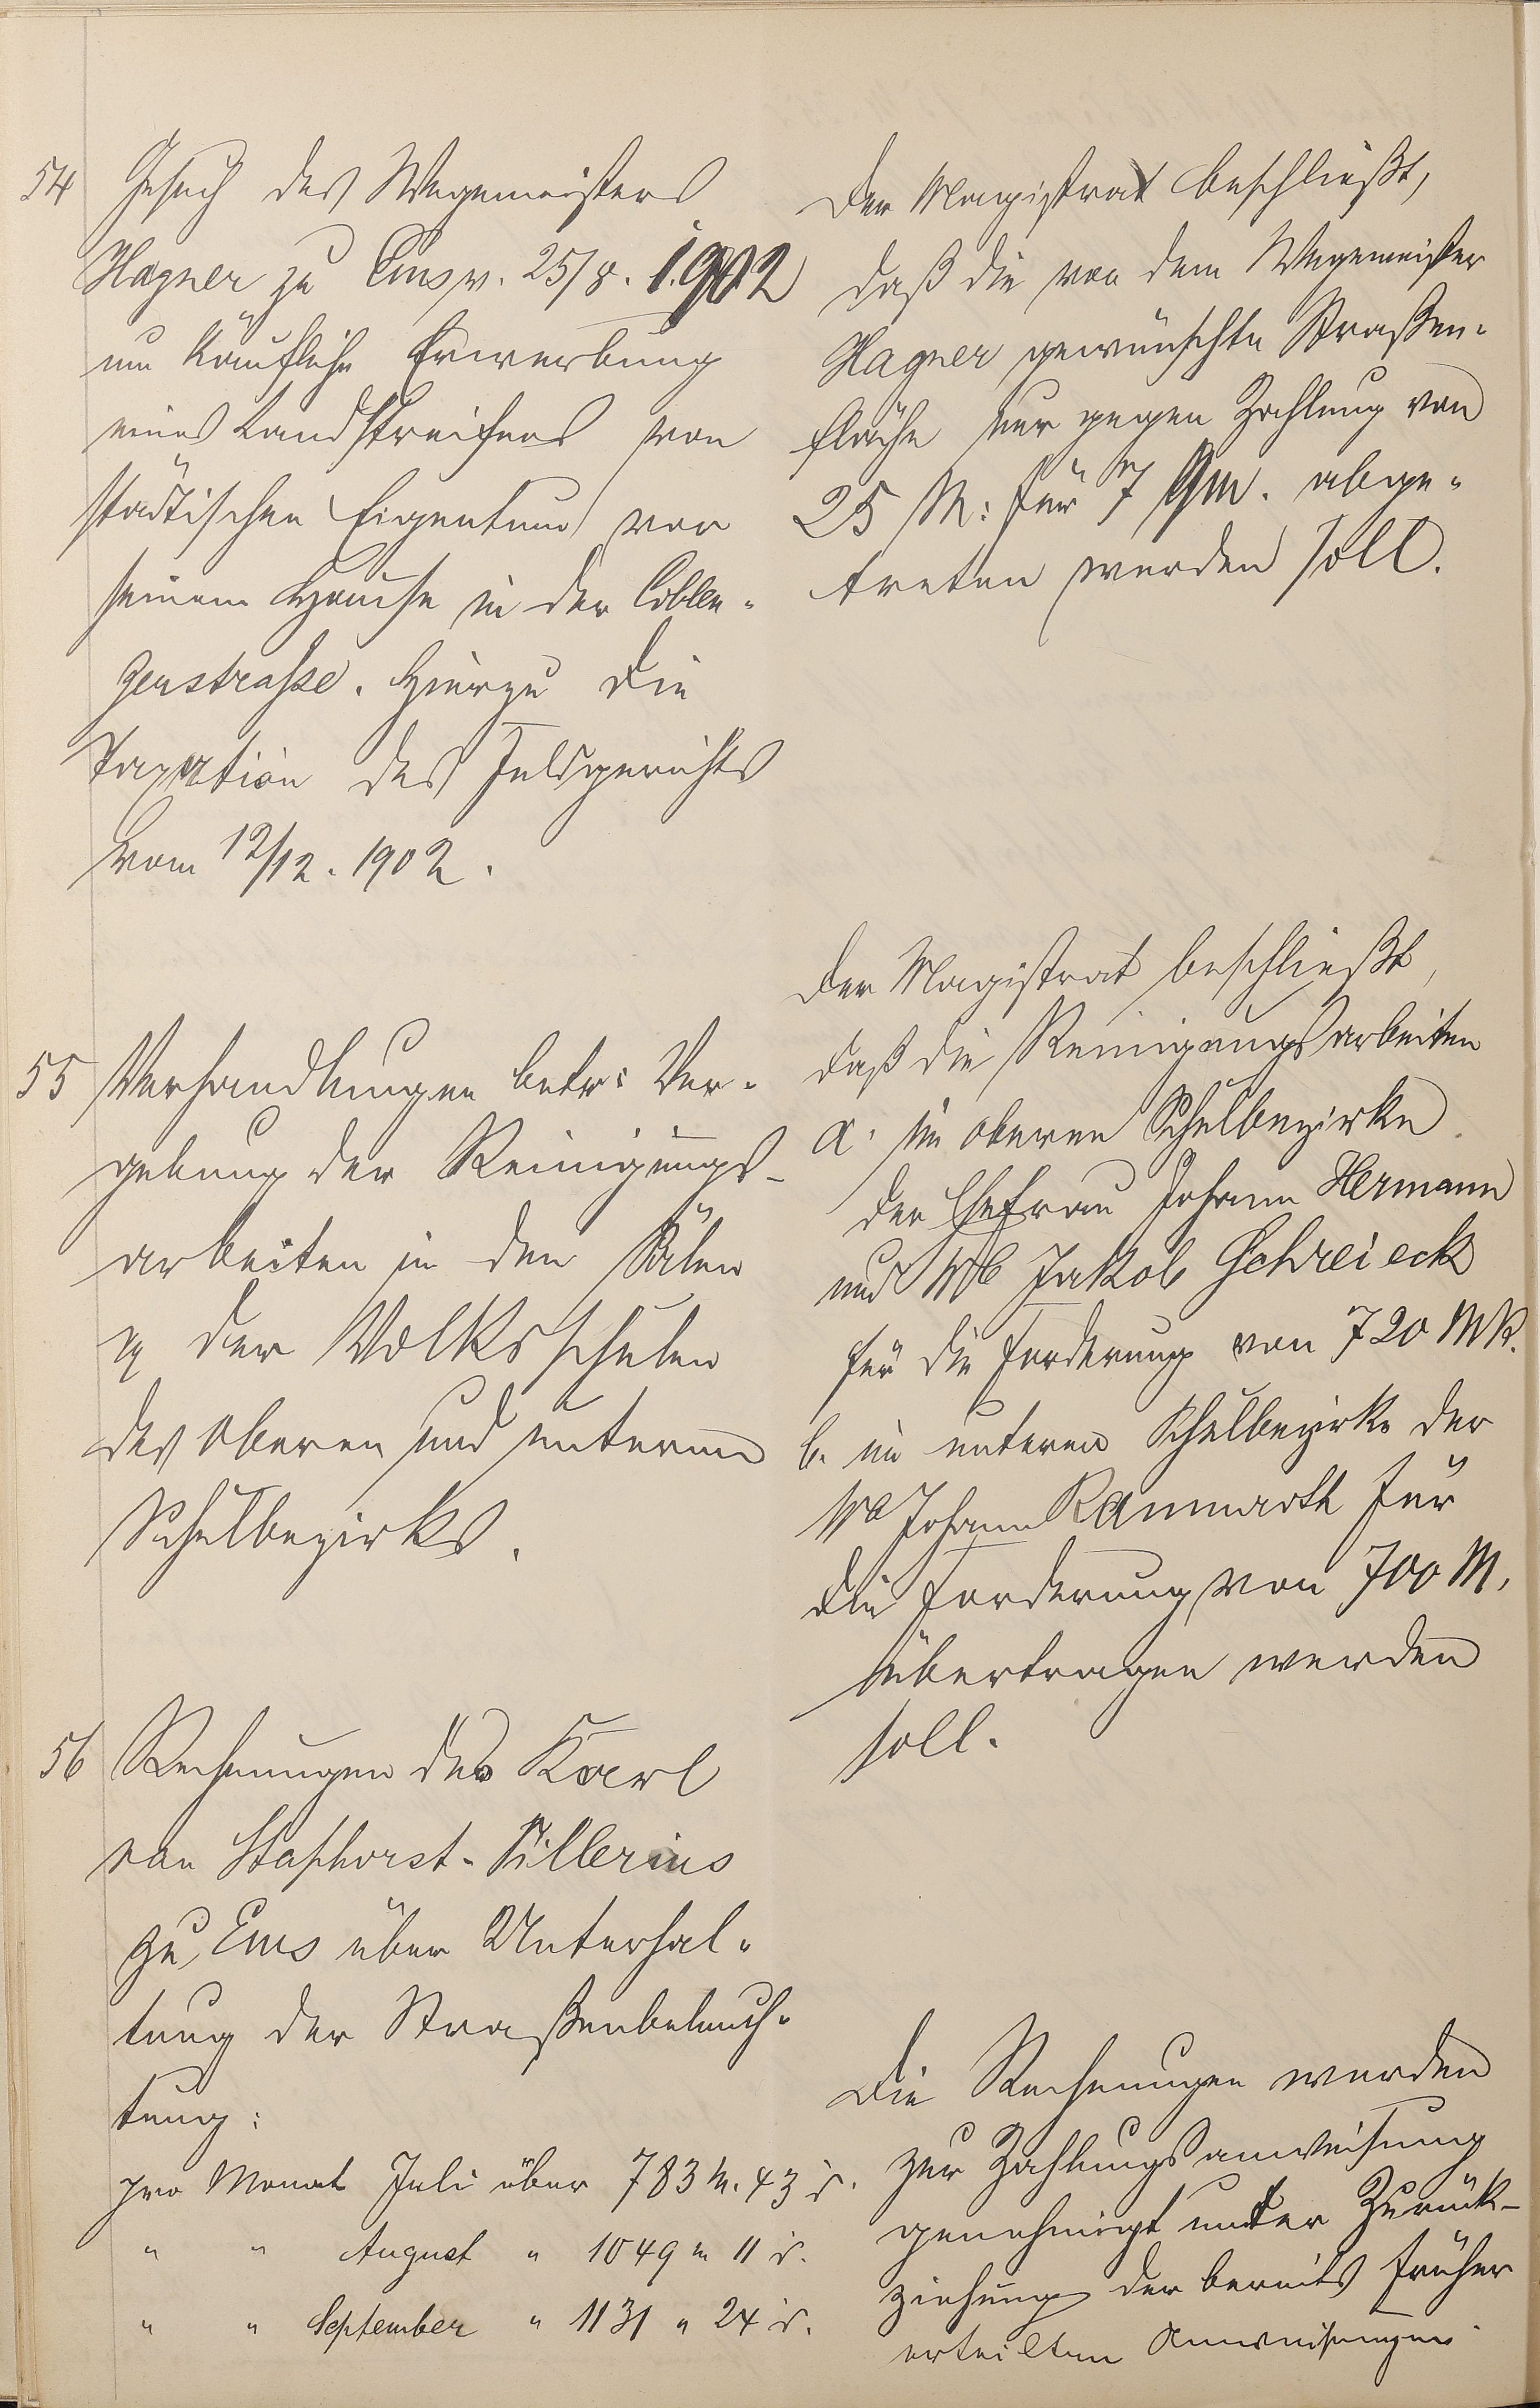 54 Gesuch des Wegemeisters
Hagner zu Ems v. 25/8. 1902
um käufliche Erwerbung
eines Landstreifens von
städtischen Eigentum vor
seinem Hause in der Coblen-
zerstraße. Hierzu die
Taxation des Feldgerichts
vom 12/12. 1902.
Der Magistrat beschließt,
daß die von dem Wegemeister
Hagner gewünschte Straßen-
fläche nur gegen Zahlung von
25 M. für 1 Qm. abge-
treten werden soll.
55 Verhandlungen betr: Ver-
gebung der Reinigungs-
arbeiten in den Sälen
pp der Volksschulen
des oberen und unteren
Schulbezirks.
Der Magistrat beschließt,
daß die Reinigungsarbeiten
a. im oberen Schulbezirke
der Ehefrau Johann Hermann
und Wb Jakob Schreieck
für die Forderung von 720 Mk.
b. im unteren Schulbezirke der
Wb Johann für
die Forderung von 700 M.
übertragen werden
soll.
56 Rechnungen des Karl
van Staphorst-Sillerius
zu Ems über Unterhal-
tung der Straßenbeleuch-
tung:
pro Monat Juli über 783 M. 43 d.
" " August " 1049 " 11 d.
" " September " 1131 " 24 d.
Die Rechnungen werden
zur Zahlungsanweisung
genehmigt unter Zurück-
ziehung der bereits früher
erteilten Anweisungen.